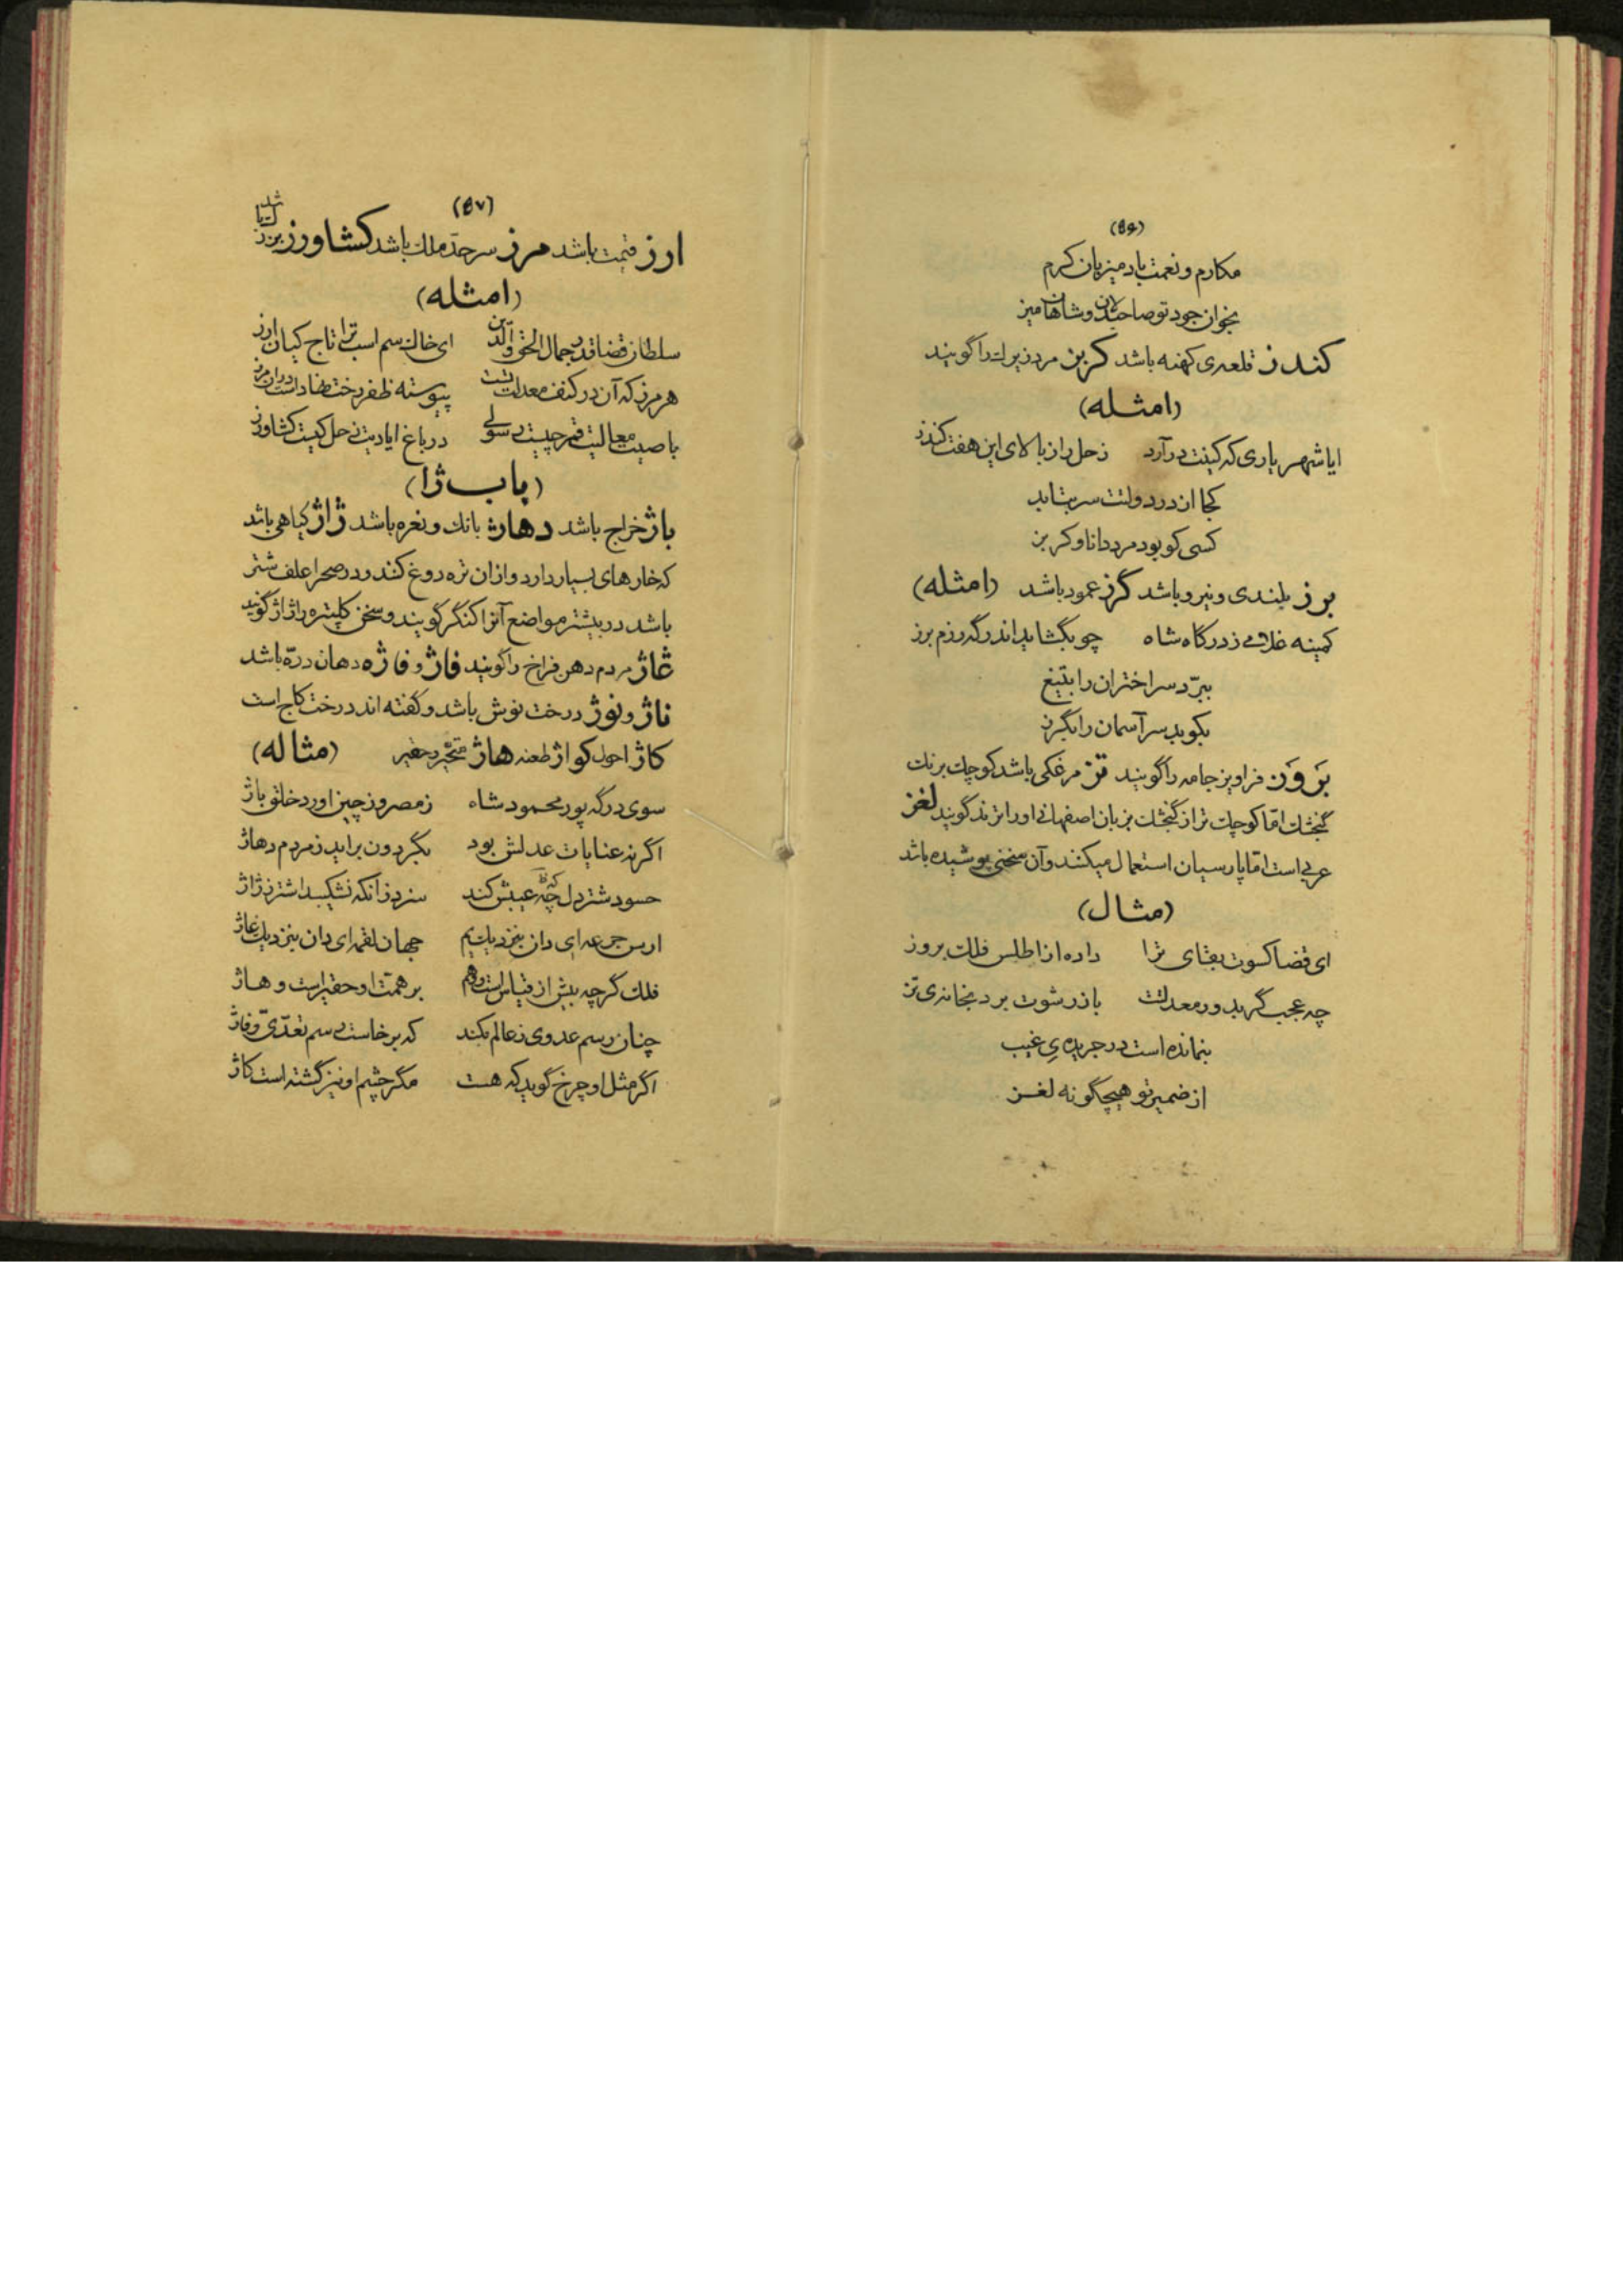 (۵۶)
مکارم و نعمت باد میزبان کرم
بخوان جود تو صاحبدلان و شاهان میز
کندز قلعه‌ی کهنه باشد کربز مرد زیرک را گویند
(امثله)
ایا شهریاری که کینت درآرد زحل را ز بالای این هفت کندز
کجا از در دولتت سر بتابد
کسی کو بود مرد دانا و کربز
برز بلندی و نیرو باشد گرز عمود باشد (امثله)
کمینه غلامی ز درگاه شاه چو بگشاید اندر گه رزم برز
ببرّد سر اختران را بتیغ
بکوبد سر آسمان را بگرز
بَروَز فراویز جامه را گویند تز مرغکی باشد کوچک برنگ
گنجشک امّا کوچک تر از گنجشک بزبان اصفهانی او را تزند گویند لغز
عربی است امّا پارسیان استعمال میکنند و آن سخنی پوشیده باشد
(مثال)
ای قضا کسوت بقای ترا داده از اطلس فلک بروز
چه عجب گر بدور معدلتت باز رشوت برد بخانه‌ی تز
بنمانده است در جریده‌یِ غیب
از ضمیر تو هیچگونه لغز
(۵۷)
ارز قیمت باشد مرز سرحدّ ملک باشد کشاورز برزگر باشد
(امثله)
سلطان قضا قدر جمال الحق و الدّین ای خاک سم اسب ترا تاج کیان ارز
هر مرز که آن در کنف معدلتت نیست پیوسته ظفر رخت قضا داشت در آن مرز
با صیت معالیت قمر چیست رسولی در باغ ایادیت زحل کیست کشاورز
(باب ژا)
باژ خراج باشد دهاژ بانک و نعره باشد ژاژ گیاهی باشد
که خارهای بسیار دارد و از ان تره دوغ کنند و در صحرا علف شتر
باشد در بیشتر مواضع آنرا کنگر گویند و سخن کلپتره را ژاژ گویند
غاژ مردم دهن فراخ را گویند فاژ و فاژه دهان درّه باشد
ناژ و نوژ درخت نوش باشد و گفته اند درخت کاج است
کاژ احول کواژ طعنه هاژ متحیّر و حقیر (مثاله)
سوی درگه پور محمود شاه ز مصر و ز چین اورد خلق باژ
اگر نه عنایات عدلش بود بگردون براید ز مردم دهاژ
حسود شتر دل چه عیبش کند سزد زانکه نشکیبد اشتر ز ژاژ
ارس جرعه‌ای دان بنزدیک یم جهان لقمه‌ای دان بنزدیک غاژ
فلک گرچه بیش از قیاس است و وهم بر همّت او حقیر است و هاژ
چنان رسم عدوی ز عالم بکند که برخاست رسم تعدّی و فاژ
اگر مثل او چرخ گوید که هست مگر چشم او نیز گشته است کاژ